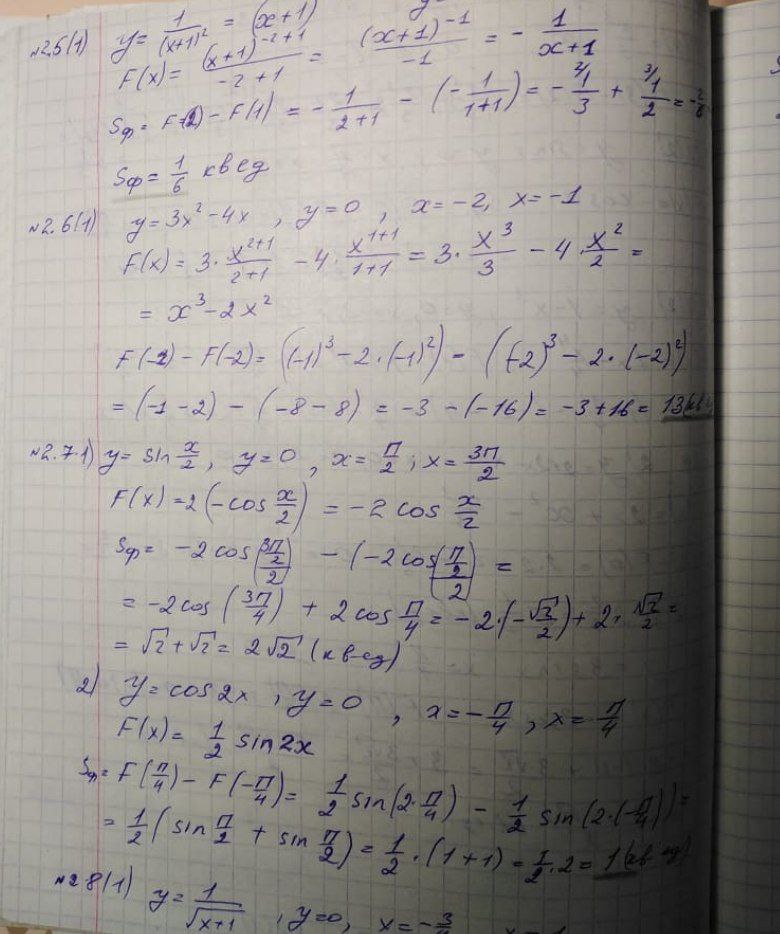 №2.5(1) y = 1/(x+1)² = (x+1)
F(x) = (x+1)⁻²⁺¹/(-2+1) = (x+1)⁻¹/(-1) = - 1/(x+1)
Sф = F(2) - F(1) = - 1/(2+1) - (- 1/(1+1)) = - ²⁾1/3 + ³⁾1/2 =
Sф = 1/6 кв ед
№2.6(1) y = 3x² - 4x , y = 0 , x = -2, x = -1
F(x) = 3 · x²⁺¹/(2+1) - 4 · x¹⁺¹/(1+1) = 3 · x³/3 - 4 · x²/2 =
= x³ - 2x²
F(-1) - F(-2) = ((-1)³ - 2·(-1)²) - ((-2)³ - 2·(-2)²)
= (-1 - 2) - (-8 - 8) = -3 - (-16) = -3 + 16 = 13
№2.7 1) y = sin x/2 , y = 0 , x = п/2 ; x = 3п/2
F(x) = 2(-cos x/2) = -2 cos x/2
Sф = -2 cos((3п/2)/2) - (-2 cos((п/2)/2) =
= -2cos(3п/4) + 2 cos п/4 = -2·(-√2/2) + 2 · √2/2 =
= √2 + √2 = 2√2 (кв-ед)
2) y = cos 2x , y = 0 , x = - п/4 , x = п/4
F(x) = 1/2 sin 2x
Sф = F(п/4) - F(-п/4) = 1/2 sin(2·п/4) - 1/2 sin(2·(-п/4)) =
= 1/2 (sin п/2 + sin п/2) = 1/2 · (1+1) = 1/2 · 2 = 1 (кв ед)
№2 8(1) y = 1/√(x+1) , y = 0, x = - 3/